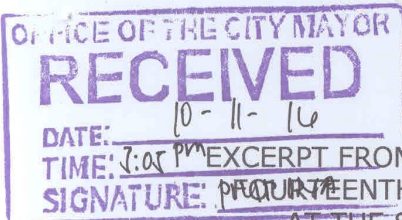 OFFICE OF THE CITY MAYOR
RECEIVED
DATE: 10-11-16
TIME: 3:05 PM EXCERPT FROM
SIGNATURE:
AT THE